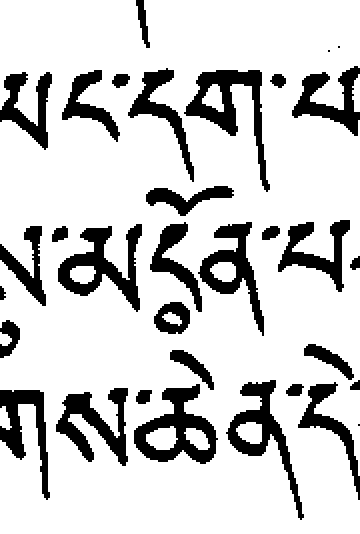 ཡང་དག་པ
ས་མངོན་པ་
གས་ཆེན་དེ